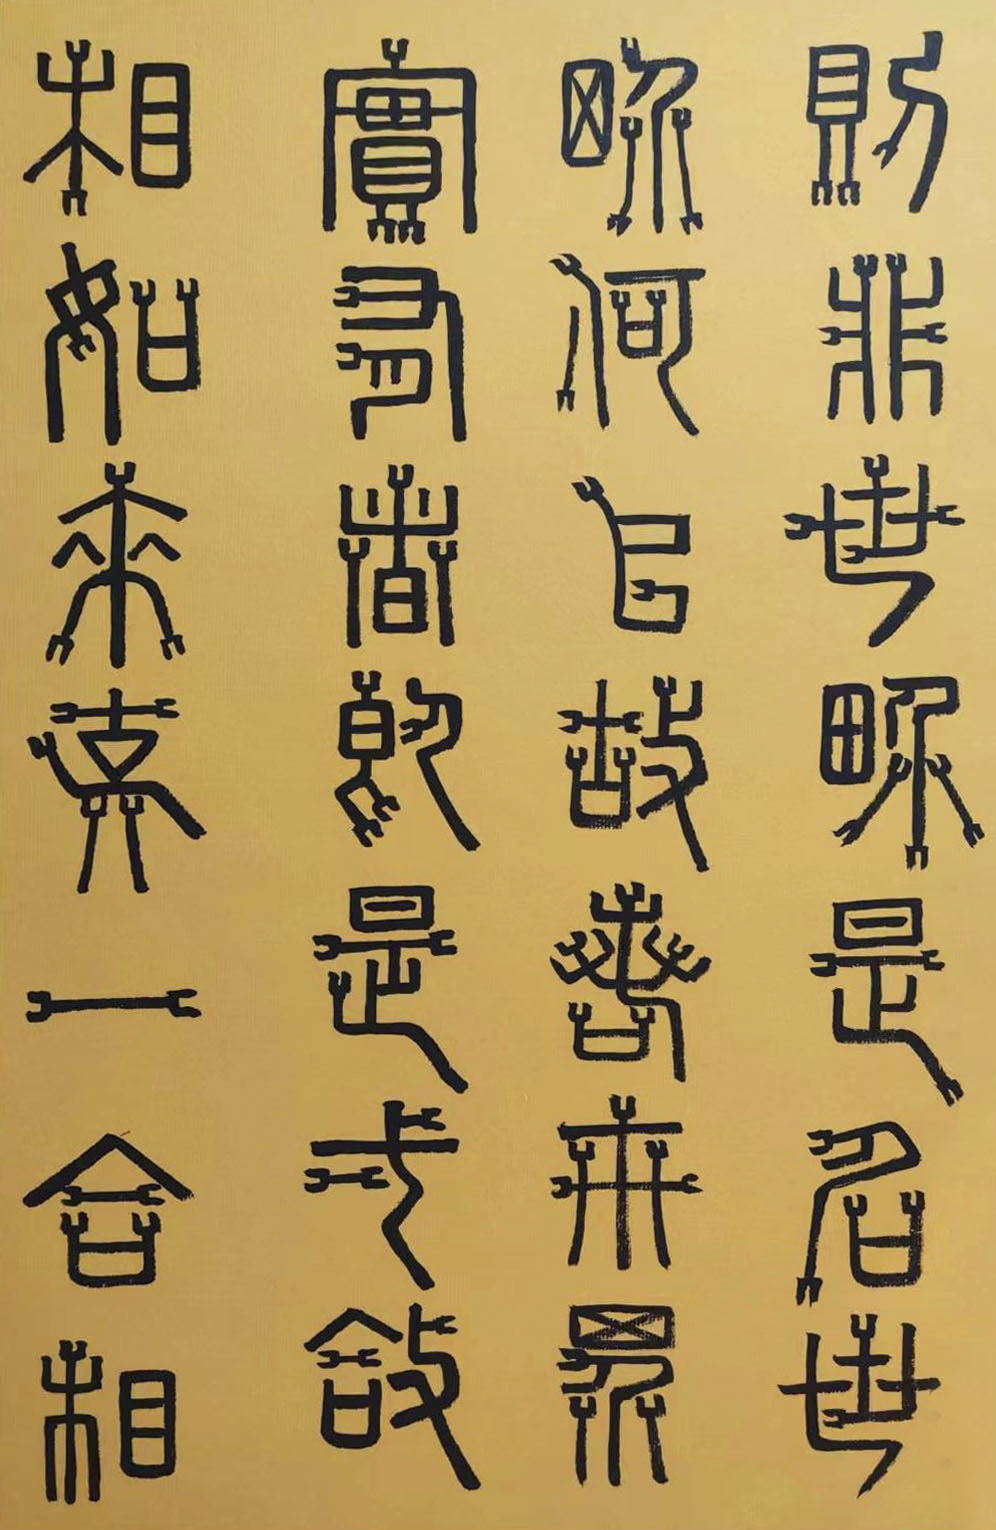 則非世界是名世
界何以故若世界
實有者即是一合
相如來說一合相